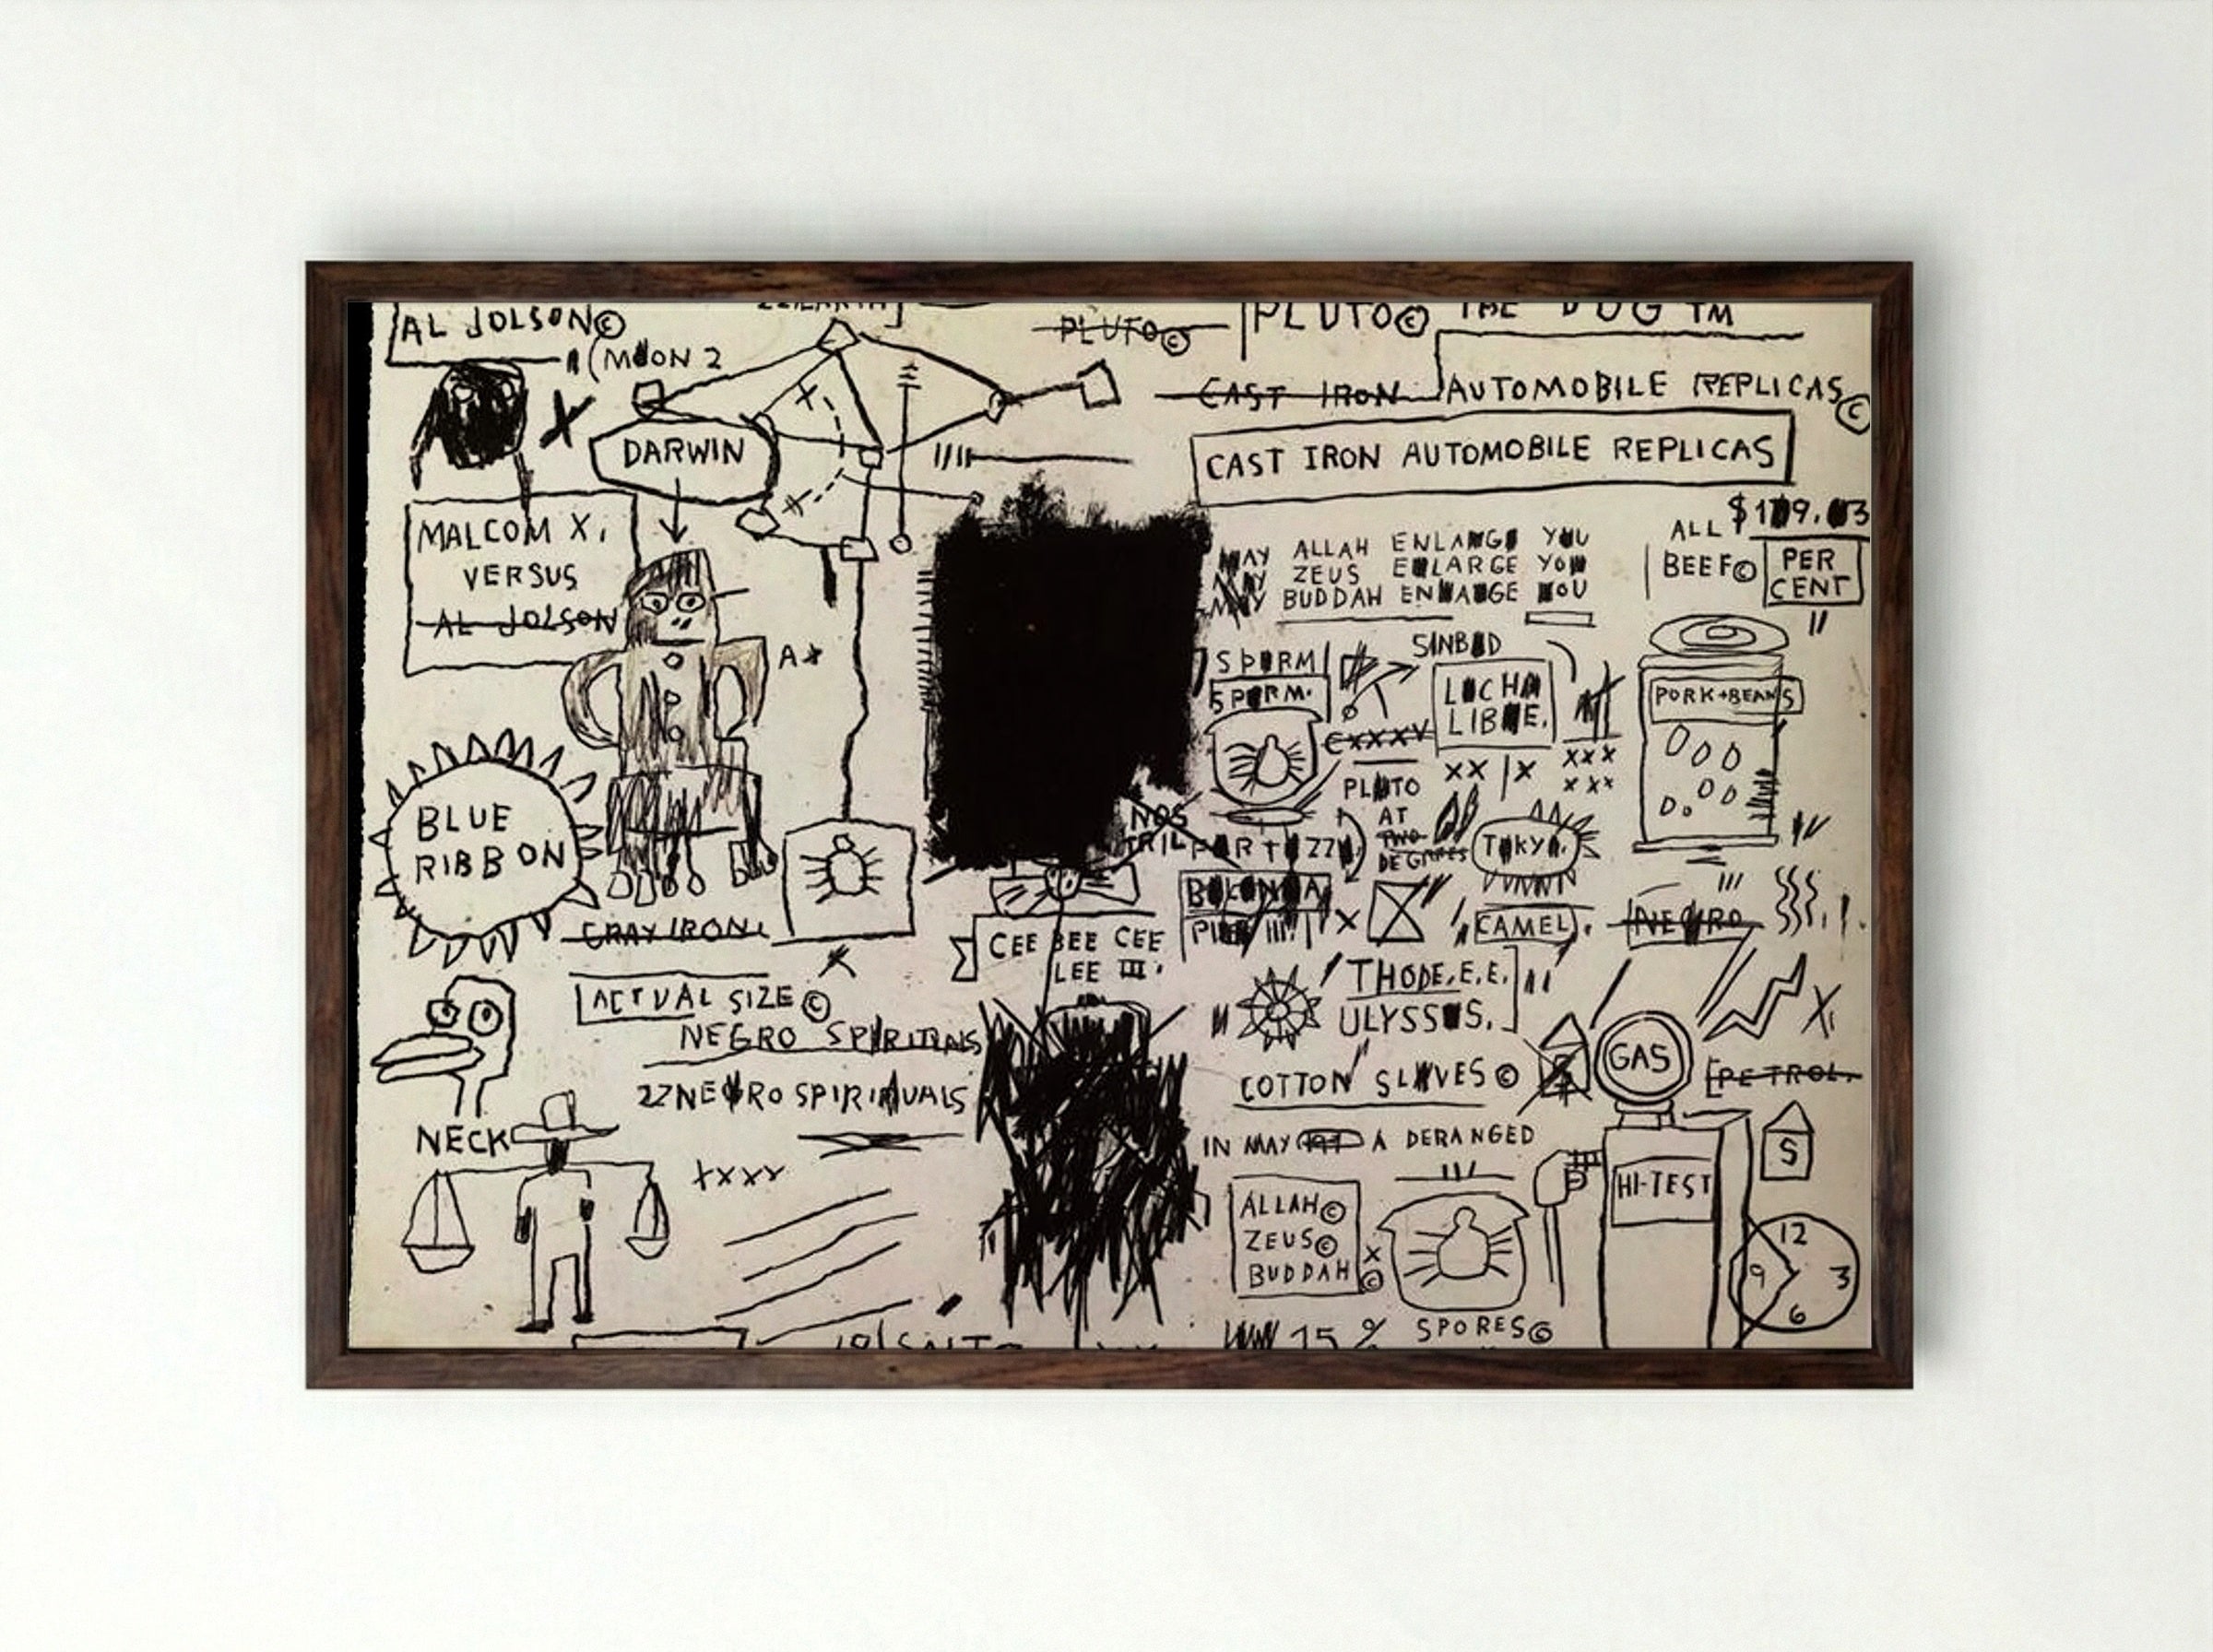 AL JOLSON©
(MOON 2
PLUTO©
PLUTO© THE DOG TM
CAST IRON AUTOMOBILE REPLICAS©
CAST IRON AUTOMOBILE REPLICAS
DARWIN
MALCOM X,
VERSUS
AL JOLSON
ALL
BEEF©
PER
CENT
MAY ALLAH ENLARGE YOU
MAY ZEUS ENLARGE YOU
MAY BUDDAH ENLARGE YOU
SINBAD
SPERM
SPERM.
LUCHA
LIBRE.
PORK+BEANS
CXXXV
XX | X
XXX
XXX
PLUTO
AT
TWO
DEGREES
TOKYO.
BLUE
RIBBON
NOS
TRIL
GRAY IRON.
CEE BEE CEE
LEE III.
CAMEL.
NEGRO
ACTUAL SIZE©
NEGRO SPIRITUALS
22 NEGRO SPIRITUALS
THODE.E.E.
ULYSSES.
COTTON SLAVES©
GAS
PETROL.
NECK
XXXX
IN MAY A DERANGED
HI-TEST
S
ALLAH©
ZEUS©
BUDDAH
X
©
12
9
3
6
15 %
SPORES©